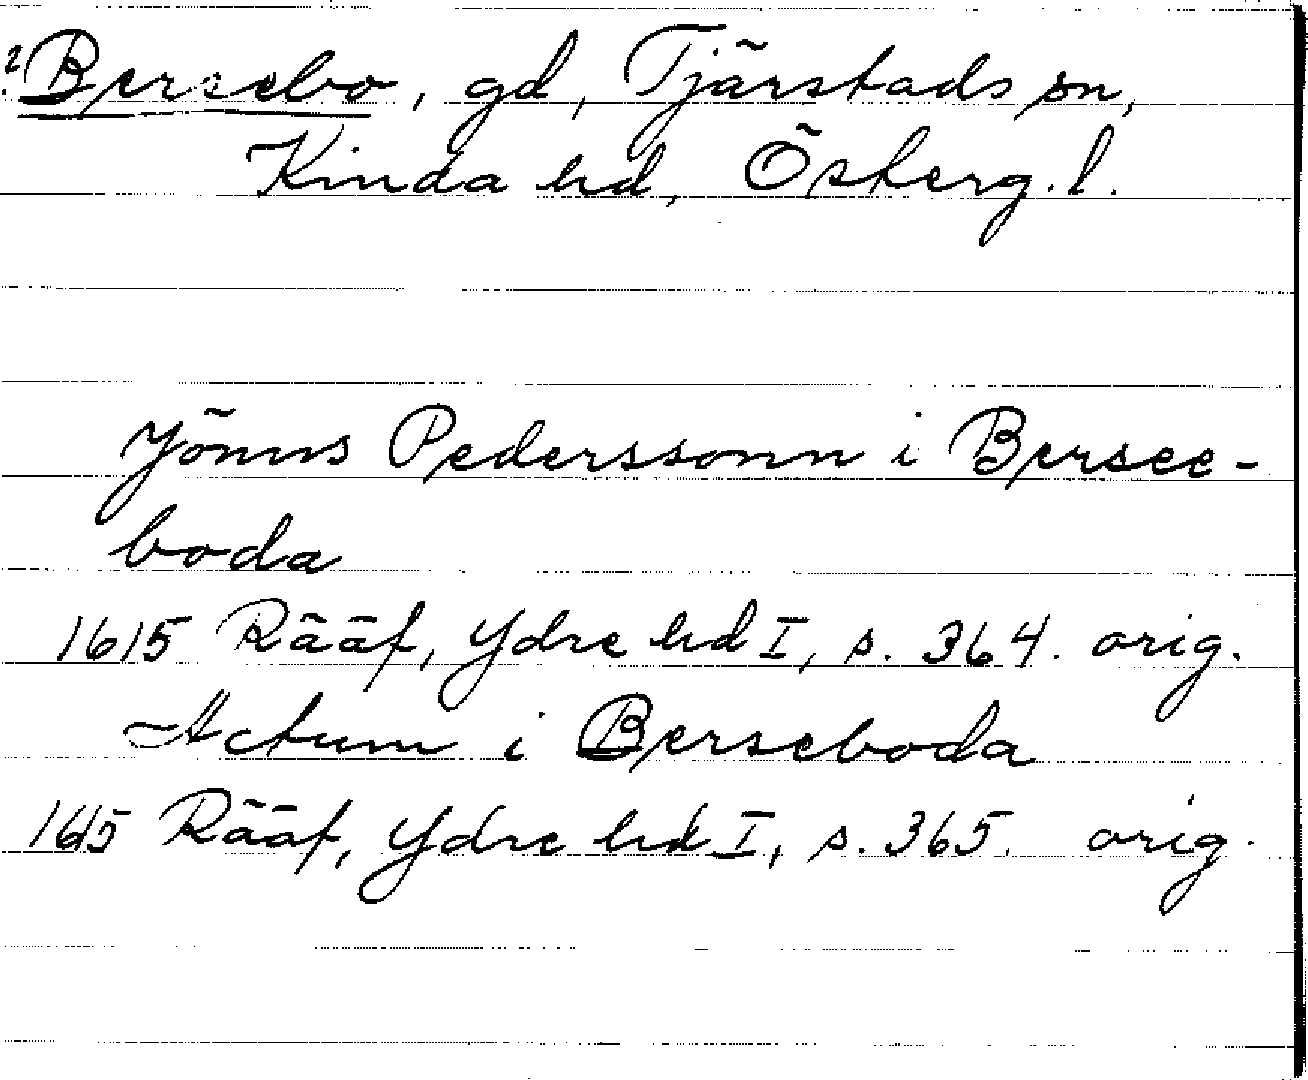 ? Bersebo, gd, Tjärstads sn,
Kinda hd, Österg. l.
Jönns Pederssonn i Bersee-
boda
1615 Rääf, Ydre hd I, s. 364. orig.
Actum i Berseboda
1615 Rääf, Ydre hd I, s. 365. orig.